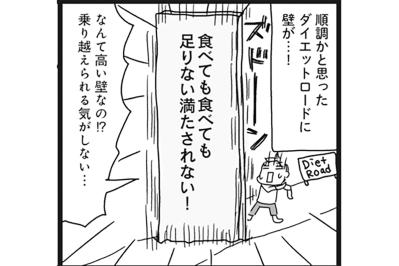 順調かと思った
ダイエットロードに
壁が…!
ズドーン
Diet
Road
食べても食べても
足りない満たされない!
なんて高い壁なの!?
乗り越えられる気がしない…